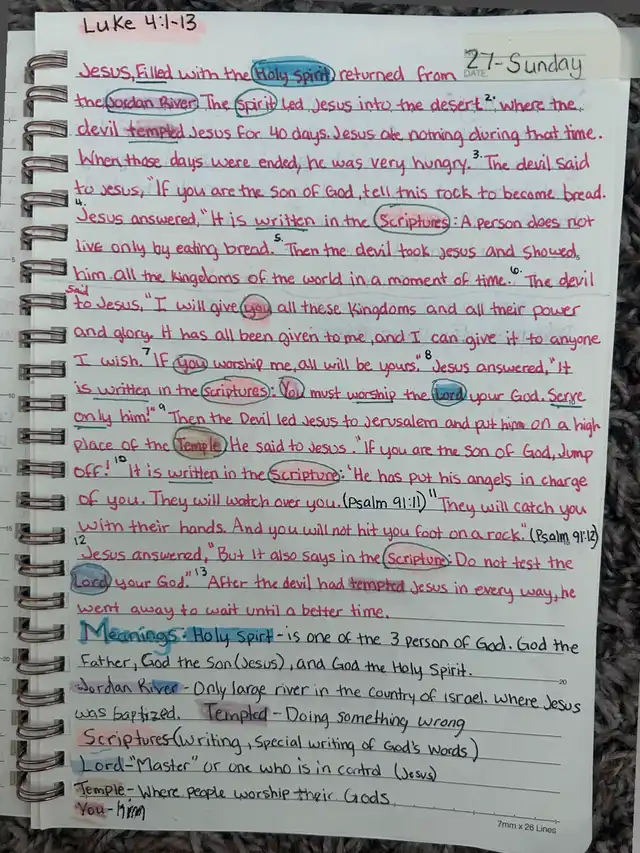 Luke 4:1-13
DATE 27-Sunday
Jesus, Filled with the Holy Spirit returned from
the Jordan River. The Spirit Led Jesus into the desert 2. where the
devil tempted Jesus for 40 days. Jesus ate nothing during that time.
When those days were ended, he was very hungry. 3. The devil said
to Jesus, "If you are the son of God, tell this rock to become bread.
4. Jesus answered, "It is written in the Scriptures: A person does not
live only by eating bread. 5. Then the devil took Jesus and showed
him all the kingdoms of the world in a moment of time. 6. The devil
said
to Jesus, "I will give you all these Kingdoms and all their power
and glory. It has all been given to me, and I can give it to anyone
I wish. 7 "If you worship me, all will be yours." 8 Jesus answered, "It
is written in the Scriptures: You must worship the Lord your God. Serve
only him!" 9 Then the Devil led Jesus to Jerusalem and put him on a high
place of the Temple. He said to Jesus. "If you are the son of God, Jump
off! 10 "It is written in the Scripture: "He has put his angels in charge
of you. They will watch over you. (Psalm 91:11) 11 They will catch you
with their hands. And you will not hit you foot on a rock." (Psalm 91:12)
12 Jesus answered, "But it also says in the Scripture: Do not test the
Lord your God." 13 After the devil had tempted Jesus in every way, he
went away to wait until a better time.
Meanings: Holy Spirt - is one of the 3 person of God. God the
Father, God the Son (Jesus), and God the Holy Spirit.
Jordan River - Only large river in the country of Israel. Where Jesus
was baptized. Tempted - Doing something wrong
Scriptures (Writing, Special writing of God's Words)
Lord - "Master" or one who is in control (Jesus)
Temple - Where people worship their Gods.
You - him
7mm x 26 Lines